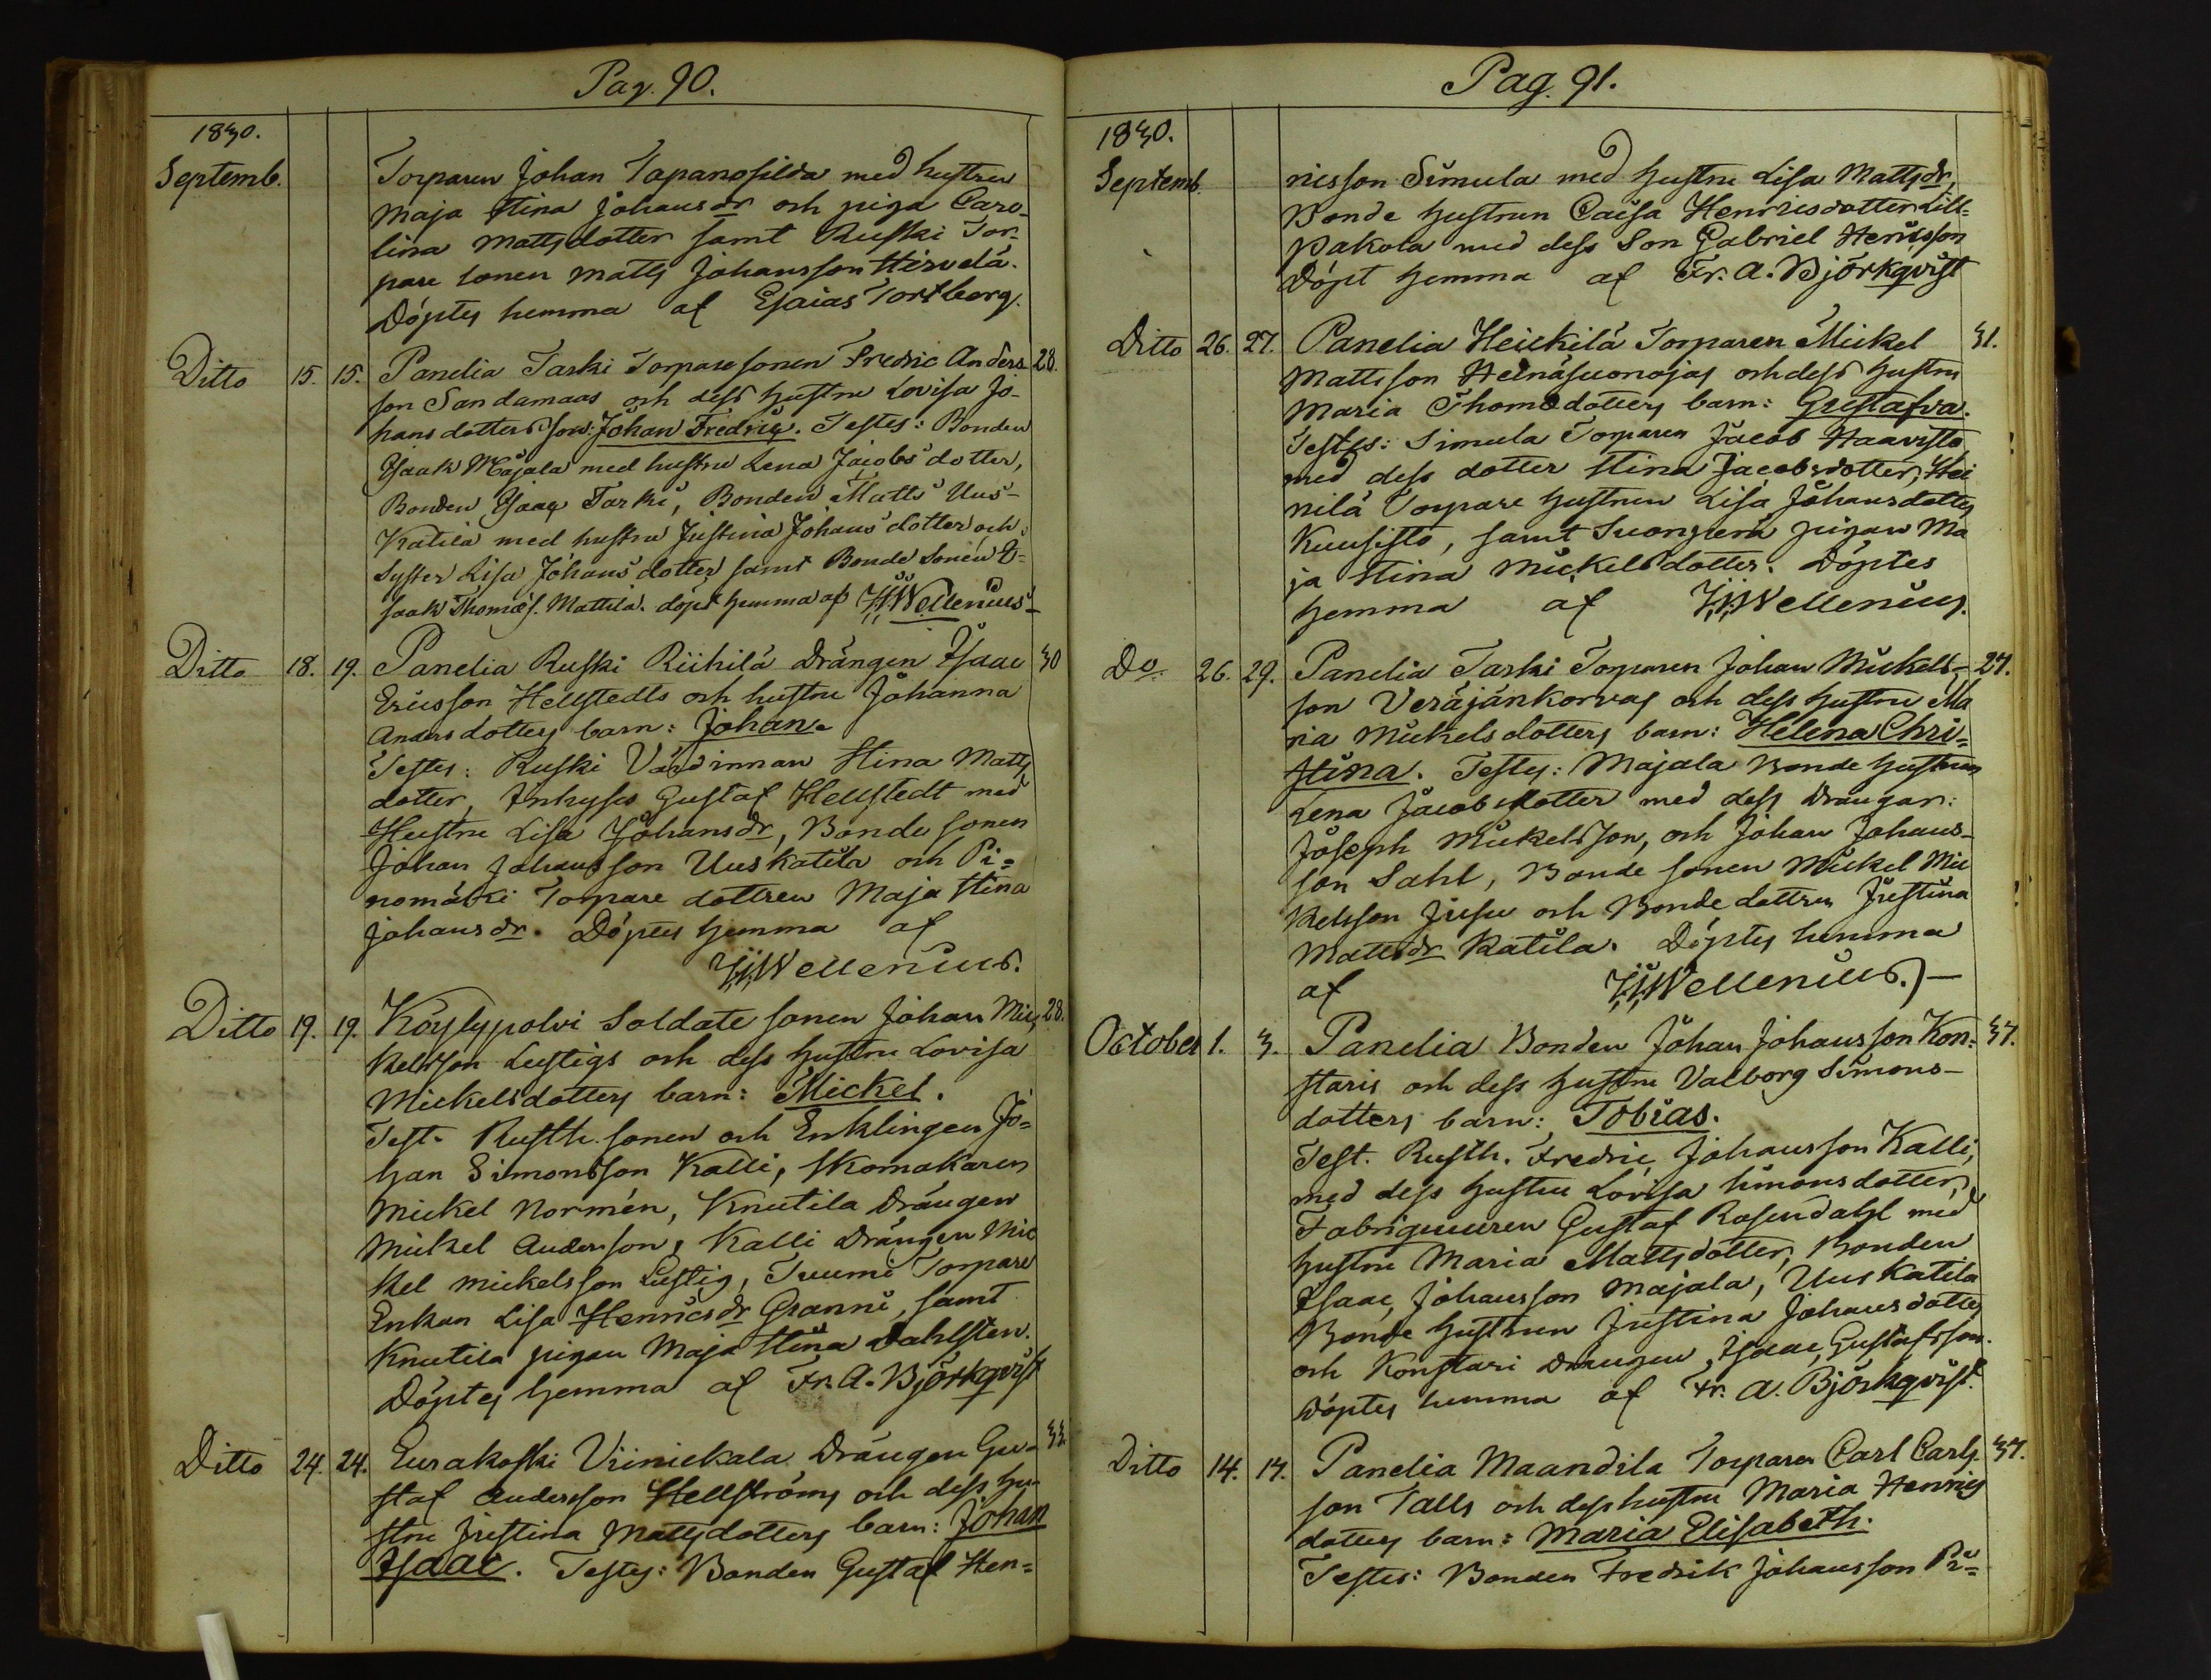 Pag. 90.
1830.
Septemb.
Torparen Johan Tapanosilda med hustru
Maja Stina Johansdr och piga Caro-
lina Mattsdotter samt Ruski Tor-
pare sonen Matts Johansson Hirvelä.
Döptes hemma af Esaias Tortberg.
Ditto 15. 15. Panelia Tarki Torparesonen Fredric Anders- 28.
son Sandamaas och dess hustru Lovisa Jo-
hansdotters son: Johan Fredric. Testes: Bonden
Isaak Majala med hustru Lena Jacobsdotter,
Bonden Isaac Tarki, Bonden Matts Uus-
Katila med hustru Justina Johansdotter och
Syster Lisa Johansdotter samt Bonde Sonen I-
saak Thomæs. Mattila. döpt hemma af Wellenius
Ditto 18. 19. Panelia Ruski Riihilä Drängen Isaac 30
Ericsson Hellstedts och hustru Johanna
Andersdotters barn: Johan.
Testes: Ruski Värdinnan Stina Matts
dotter, Inhyses Gustaf Hellstedt med
Hustru Lisa Johansdr, Bonde sonen
Johan Johansson Uuskatila och Pi-
nomäki Torpare dottren Maja Stina
Johansdr. Döptes hemma af
Wellenius.
Ditto 19. 19. Köylypolvi Soldate sonen Johan Mic- 28.
kelsson Lustigs och dess hustru Lovisa
Mickelsdotters barn: Mickel.
Test. Rusth. sonen och Enklingen Jo-
han Simonsson Kalli, Skomakaren
Mickel Normén, Knutila Drängen
Mickel Andersson, Kalli Drängen Mic
kel Mickelsson Lustig, Tuumi Torpare
Enkan Lisa Henricsdr Granni, samt
Knutila pigan Maja Stina Dahlsten.
Döptes hemma af Fr. A. Björkqvist
Ditto 24. 24. Eurakoski Viiniekala Drängen Gu- 33.
staf Andersson Hellströms och dess hu-
stru Justina Mattsdotters barn: Johan
Isaac. Testes: Bonden Gustaf Hen-
Pag. 91.
1830.
Septemb.
ricsson Simula med hustru Lisa Mattsdr,
Bonde hustrun Caisa Henricsdotter Lill-
Pakola med dess Son Gabriel Henricsson
Döpt hemma af Fr. A. Björkqvist
Ditto 26. 27. Panelia Heickilä Torparen Mickel 31.
Mattsson Heinäsuonojas och dess hustru
Maria Thomædotters barn: Gustafva.
Testes: Simula Torparen Jacob Haavisto
med dess dotter Stina Jacobsdotter, Hei
nilä Torpare hustrun Lisa Johansdotter
Kuusisto, samt pigan Ma
ja Stina Mickelsdotter. Döptes
hemma af Wellenius.
Do 26. 29. Panelia Tarki Torparen Johan Mickels- 27.
son Veräjänkorvas och dess hustru Ma
ria Mickelsdotters barn: Helena Chri-
stina. Testes: Majala Bonde hustrun
Lena Jacobsdotter med dess Drängar:
Joseph Mickelsson, och Johan Johans-
son Sahl, Bonde sonen Mickel Mic
kelsson Jusu och Bonde dottren Justina
Mattsdr Katila. Döptes hemma
af Wellenius.
October 1. 3. Panelia Bonden Johan Johansson Kon- 37.
staris och dess hustru Valborg Simons-
dotters barn: Tobias.
Test. Rusth. Fredric Johansson Kalli,
med dess hustru Lovisa Simonsdotter,
Fabriqueuren Gustaf Rosendahl med
hustru Maria Mattsdotter, Bonden
Isaac Johansson Majala, Uuskatila
Bonde hustrun Justina Johansdotter
och Konstari Drängen Isaac Gustafsson.
Döptes hemma af Fr. A. Björkqvist.
Ditto 14. 17. Panelia Maandila Torparen Carl Carls- 37.
son Talls och dess hustru Maria Henrics
dotters barn: Maria Elisabeth.
Testes: Bonden Fredrik Johansson Pi-